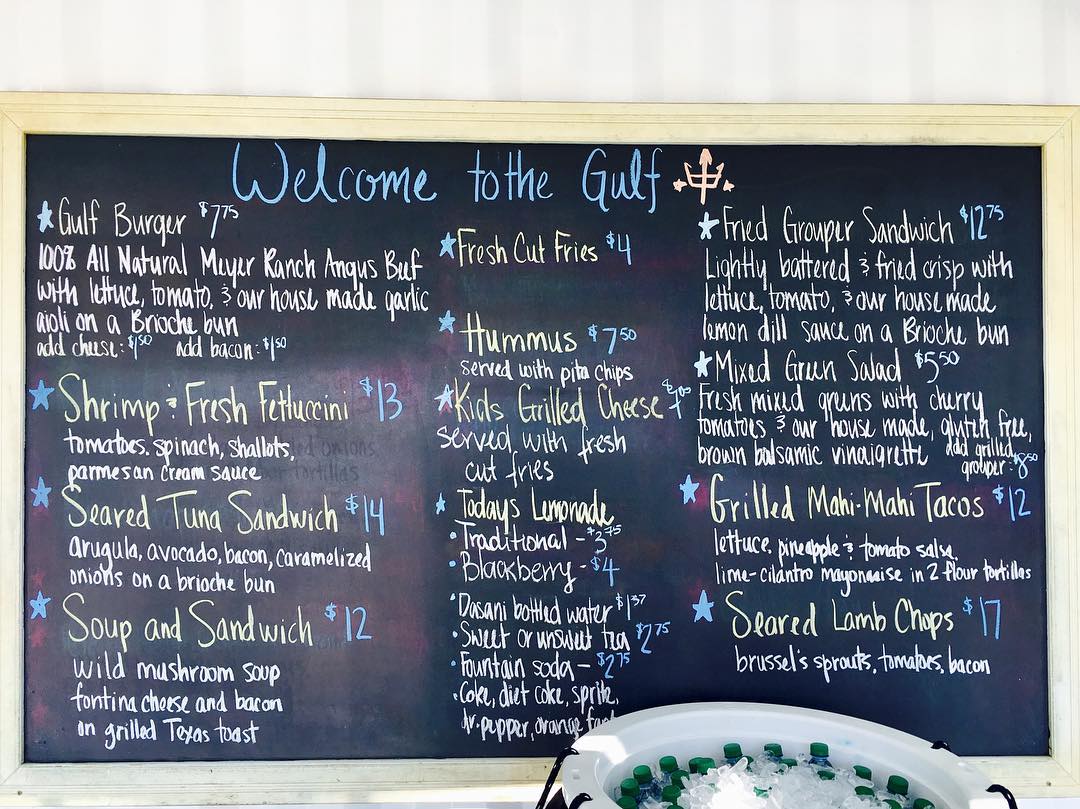 Welcome to the Gulf
Gulf Burger $7.75
100% All Natural Meyer Ranch Angus Beef
with lettuce, tomato, & our house made garlic
aioli on a Brioche bun
add cheese: $1.50 add bacon: $1.50
Shrimp & Fresh Fettuccini $13
tomatoes, spinach, shallots,
parmesan cream sauce
Seared Tuna Sandwich $14
arugula, avocado, bacon, caramelized
onions on a brioche bun
Soup and Sandwich $12
wild mushroom soup
fontina cheese and bacon
on grilled Texas toast
Fresh Cut Fries $4
Hummus $7.50
served with pita chips
Kids Grilled Cheese
served with fresh
cut fries
Todays Lemonade
• Traditional - $3.75
• Blackberry - $4
• Dasani bottled water $1.37
• Sweet or unsweet tea $2.75
• Fountain soda - $2.75
• Coke, diet coke, sprite,
dr. pepper, orange
Fried Grouper Sandwich $12.75
Lightly battered & fried crisp with
lettuce, tomato, & our house made
lemon dill sauce on a Brioche bun
Mixed Green Salad $5.50
Fresh mixed greens with cherry
tomatoes & our house made, gluten free,
brown balsamic vinaigrette add grilled
grouper: $8.50
Grilled Mahi-Mahi Tacos $12
lettuce, pineapple & tomato salsa,
lime-cilantro mayonnaise in 2 flour tortillas
Seared Lamb Chops $17
brussel's sprouts, tomatoes, bacon